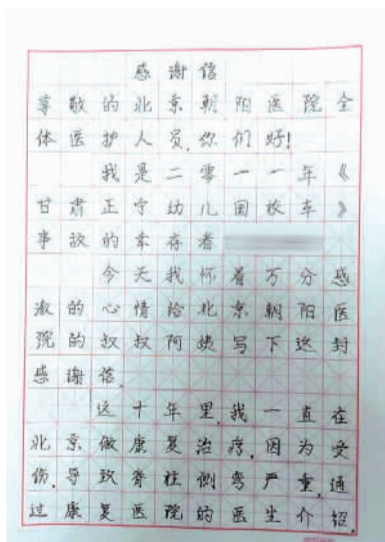 感谢信
尊敬的北京朝阳医院全
体医护人员,你们好!
我是二零一一年《
甘肃正宁幼儿园校车》
事故的幸存者
今天我怀着万分感
激的心情给北京朝阳医
院的叔叔阿姨写下这封
感谢信.
这十年里,我一直在
北京做康复治疗,因为受
伤,导致脊柱侧弯严重,通
过康复医院的医生介绍,